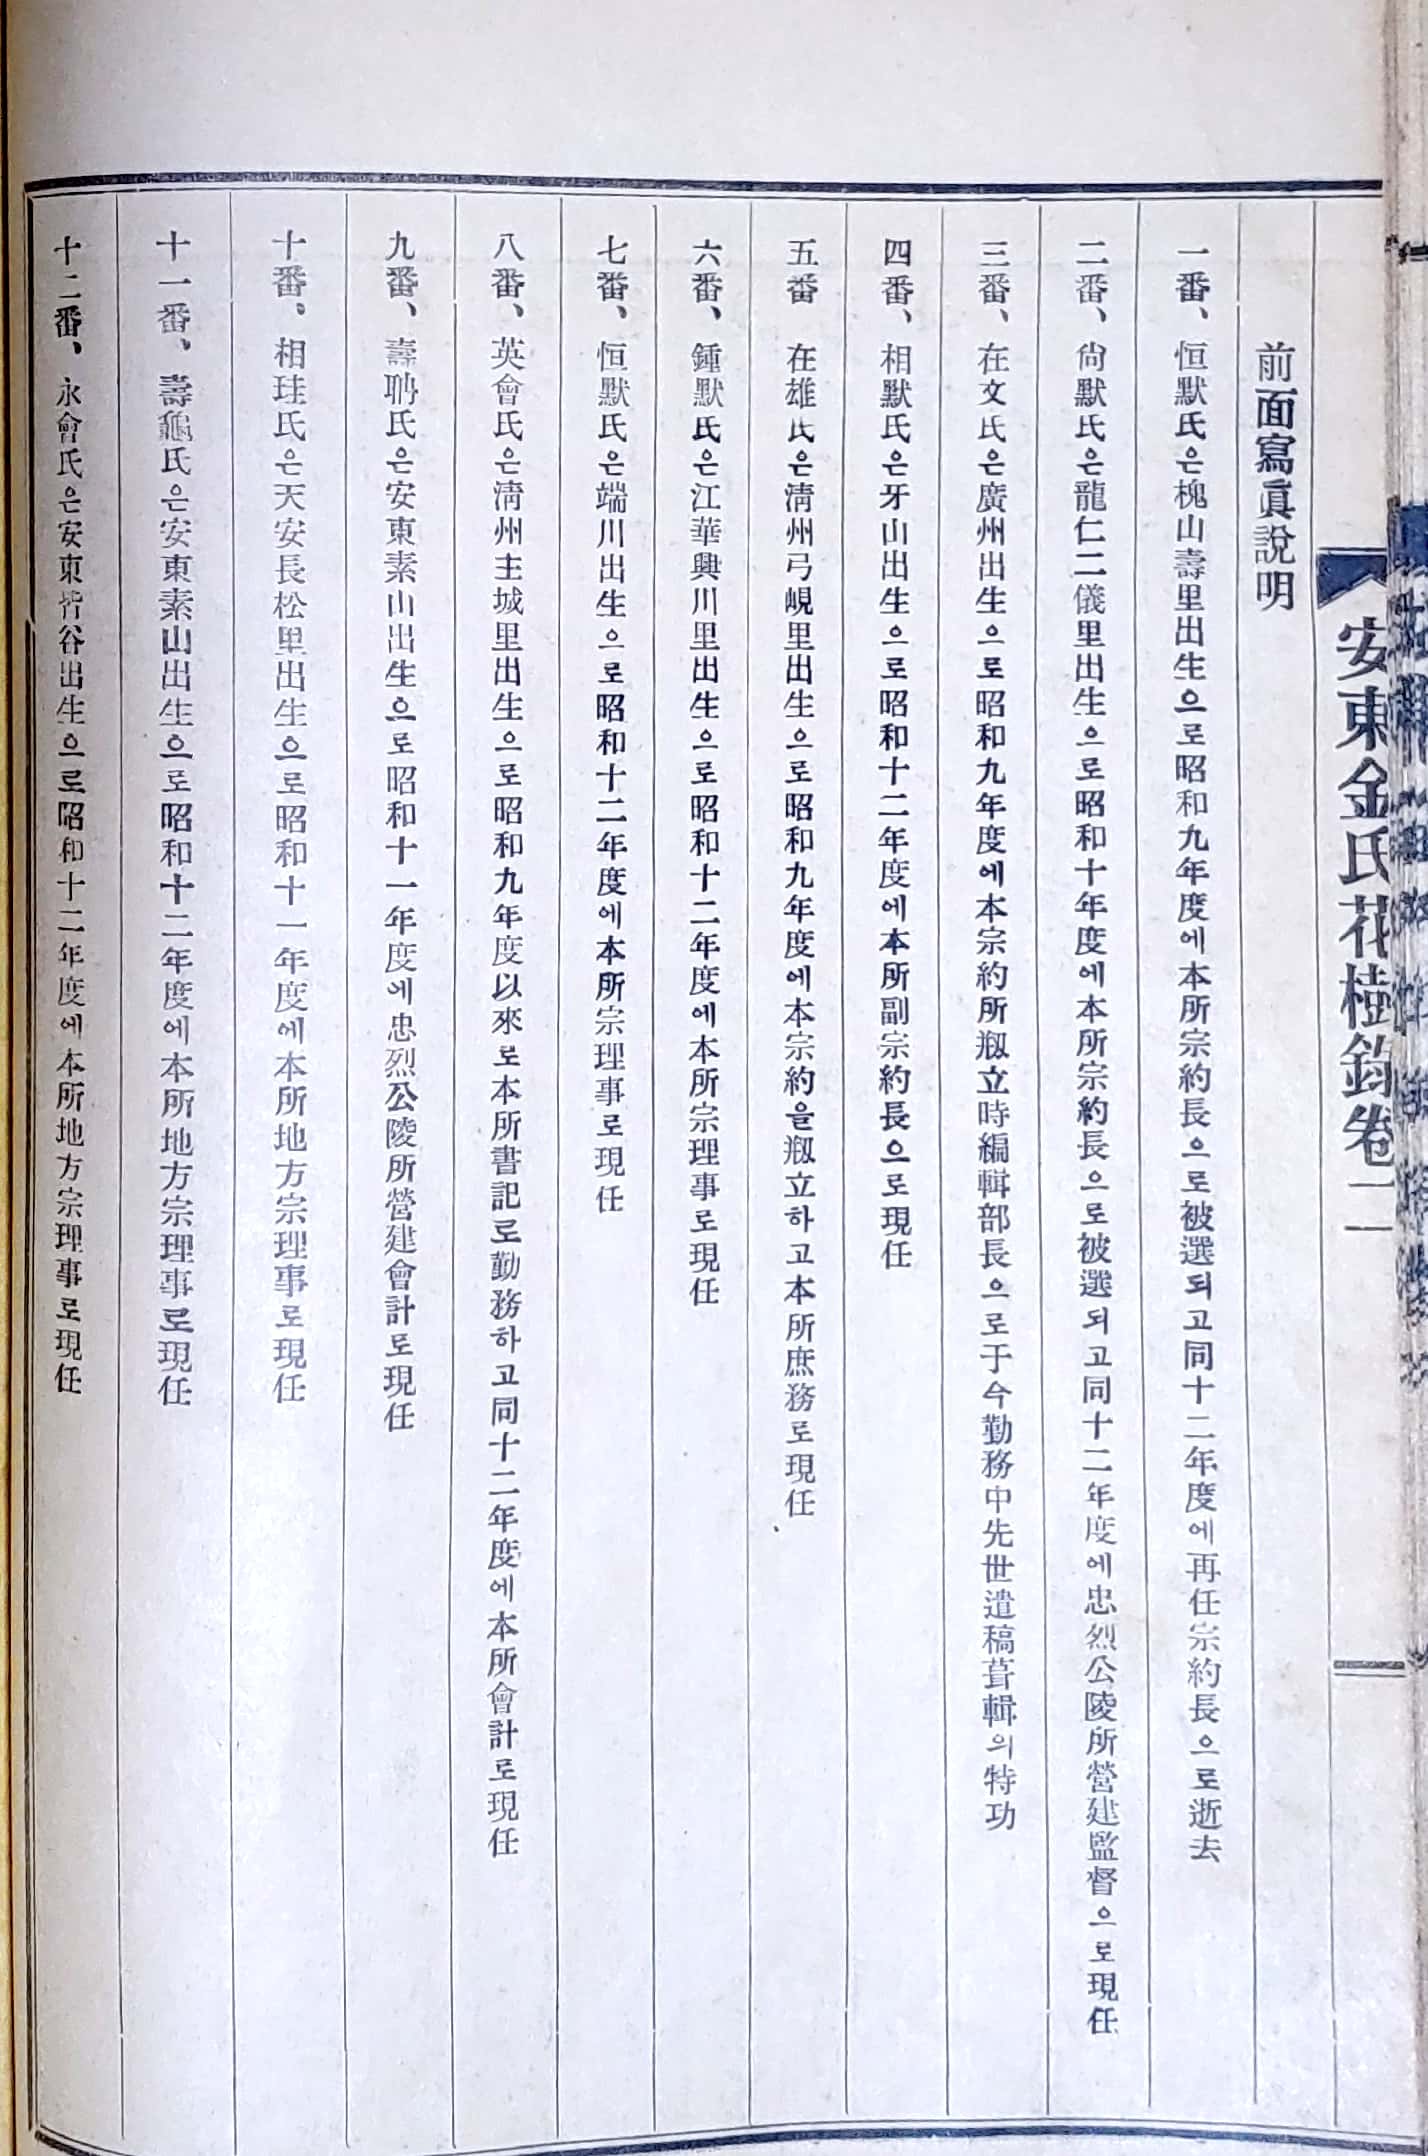 安東金氏花樹錄卷二
前面寫眞說明
一番、恒默氏은槐山壽里出生으로昭和九年度에本所宗約長으로被選되고同十二年度에再任宗約長으로逝去
二番、尙默氏은龍仁二儀里出生으로昭和十年度에本所宗約長으로被選되고同十二年度에忠烈公陵所營建監督으로現任
三番、在文氏은廣州出生으로昭和九年度에本宗約所刱立時編輯部長으로于今勤務中先世遺稿葺輯의特功
四番、相默氏은牙山出生으로昭和十二年度에本所副宗約長으로現任
五番　在雄氏은淸州弓峴里出生으로昭和九年度에本宗約을刱立하고本所庶務로現任
六番、鍾默氏은江華興川里出生으로昭和十二年度에本所宗理事로現任
七番、恒默氏은端川出生으로昭和十二年度에本所宗理事로現任
八番、英會氏은淸州主城里出生으로昭和九年度以來로本所書記로勤務하고同十二年度에本所會計로現任
九番、壽聘氏은安東素山出生으로昭和十一年度에忠烈公陵所營建會計로現任
十番、相珪氏은天安長松里出生으로昭和十一年度에本所地方宗理事로現任
十一番、壽龜氏은安東素山出生으로昭和十二年度에本所地方宗理事로現任
十二番、永會氏은安東皆谷出生으로昭和十二年度에本所地方宗理事로現任